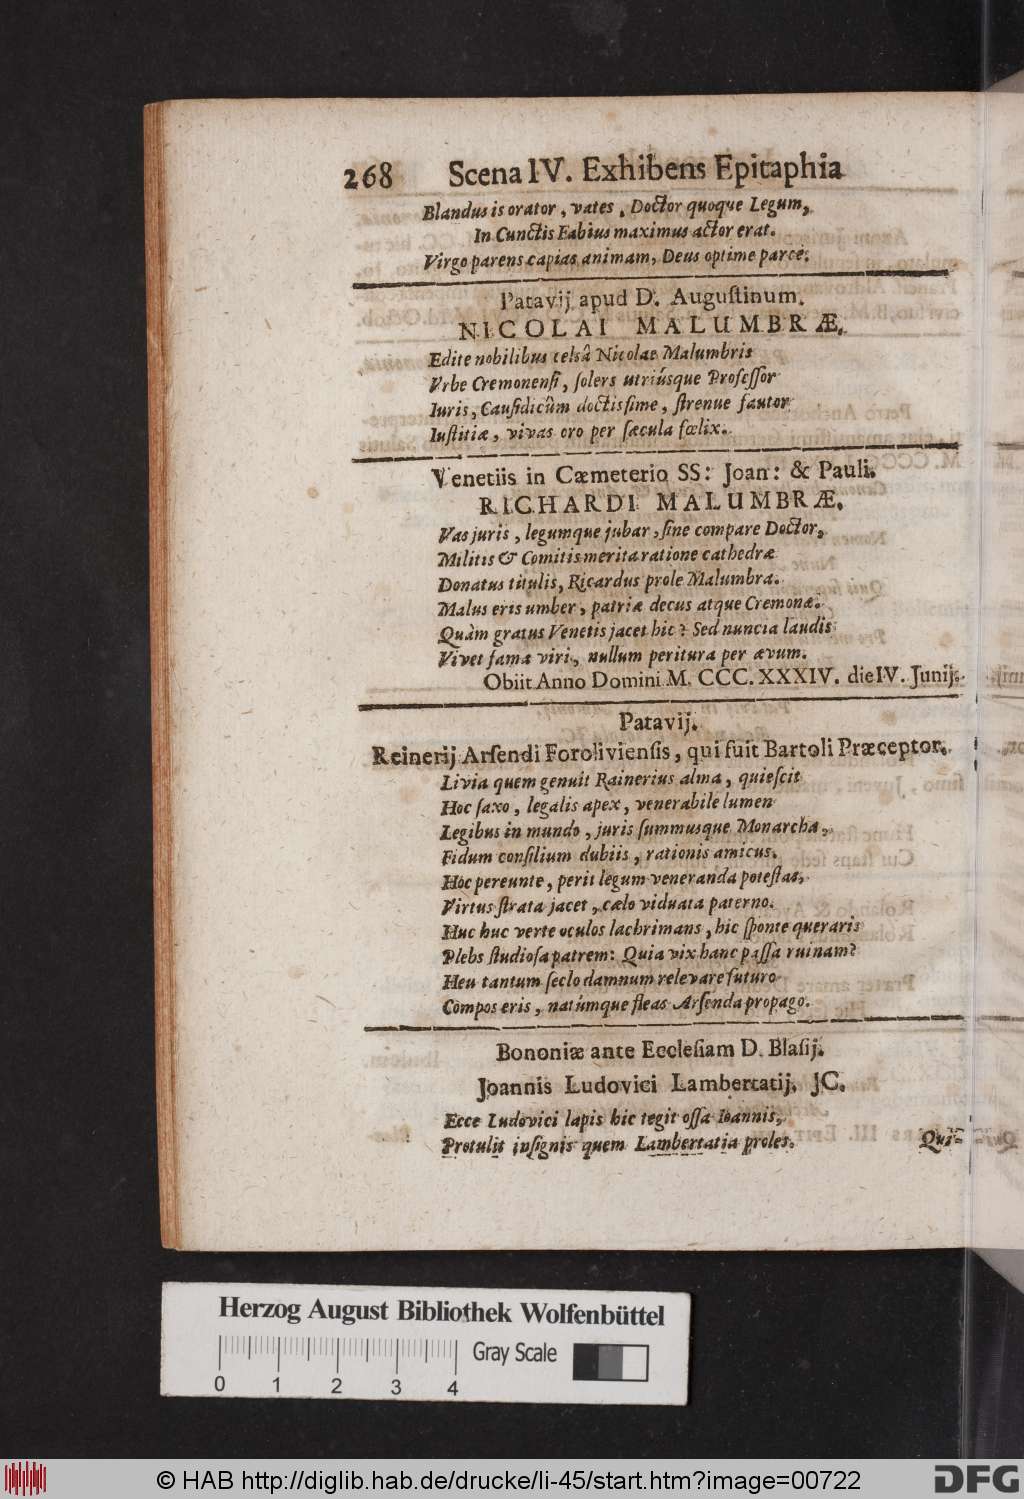 268 Scena IV. Exhibens Epitaphia
Blandus is orator, vates, Doctor quoque Legum,
In Cunctis Fabius maximus actor erat.
Virgo parens capias animam, Deus optime parce.
Patavij apud D. Augustinum.
NICOLAI MALUMBRÆ.
Edite nobilibus celsâ Nicolae Malumbris
Vrbe Cremonensi, solers utriúsque Professor
Iuris, Causidicûm doctissime, strenue fautor
Iustitiæ, vivas oro per sæcula fœlix.
Venetiis in Cæmeterio SS: Joan: & Pauli.
RICHARDI MALUMBRÆ.
Vas juris, legumque jubar, sine compare Doctor,
Militis & Comitis merita ratione cathedræ
Donatus titulis, Ricardus prole Malumbra.
Malus eris umber, patriæ decus atque Cremonæ.
Quàm gratus Venetis jacet hic? Sed nuncia laudis
Vivet fama viri, nullum peritura per ævum.
Obiit Anno Domini M. CCC. XXXIV. die IV. Junij.
Patavij.
Reinerij Arsendi Foroliviensis, qui fuit Bartoli Præceptor.
Livia quem genuit Rainerius alma, quiescit
Hoc saxo, legalis apex, venerabile lumen
Legibus in mundo, juris summusque Monarcha,
Fidum consilium dubiis, rationis amicus.
Hoc pereunte, perit legum veneranda potestas,
Virtus strata jacet, cælo viduata paterno.
Huc huc verte oculos lachrimans, hic sponte queraris
Plebs studiosa patrem: Quia vix hanc passa ruinam?
Heu tantum seclo damnum relevare futuro
Compos eris, natúmque fleas Arsenda propago.
Bononiæ ante Ecclesiam D. Blasij.
Joannis Ludovici Lambertatij. JC.
Ecce Ludovici lapis hic tegit ossa Ioannis,
Protulit insignis quem Lambertatia proles.
Qui-
Herzog August Bibliothek Wolfenbüttel
Gray Scale
0 1 2 3 4
© HAB http://diglib.hab.de/drucke/li-45/start.htm?image=00722
DFG